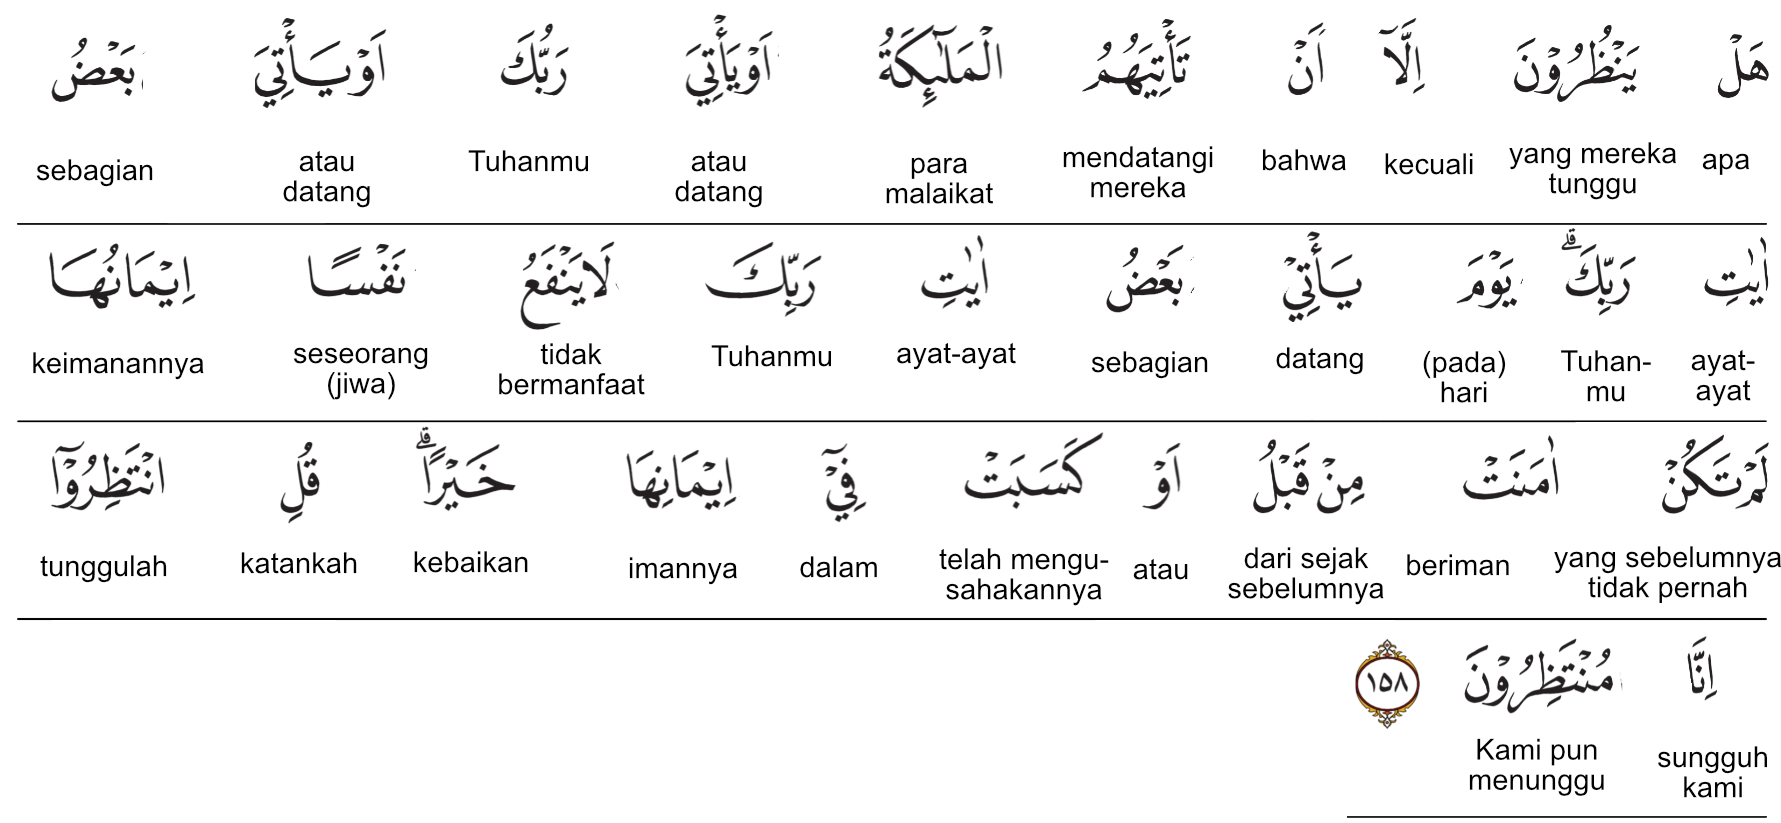 هَلْ يَنْظُرُوْنَ اِلَّآ اَنْ تَأْتِيَهُمُ الْمَلٰۤىِٕكَةُ اَوْيَأْتِيَ رَبُّكَ اَوْيَأْتِيَ بَعْضُ
apa yang mereka tunggu kecuali bahwa mendatangi mereka para malaikat atau datang Tuhanmu atau datang sebagian
اٰيٰتِ رَبِّكَ ۗ يَوْمَ يَأْتِيْ بَعْضُ اٰيٰتِ رَبِّكَ لَايَنْفَعُ نَفْسًا اِيْمَانُهَا
ayat-ayat Tuhan-mu (pada) hari datang sebagian ayat-ayat Tuhanmu tidak bermanfaat seseorang (jiwa) keimanannya
لَمْ تَكُنْ اٰمَنَتْ مِنْ قَبْلُ اَوْ كَسَبَتْ فِيْٓ اِيْمَانِهَا خَيْرًا ۗ قُلِ انْتَظِرُوْٓا
yang sebelumnya tidak pernah beriman dari sejak sebelumnya atau telah mengu-sahakannya dalam imannya kebaikan katankah tunggulah
اِنَّا مُنْتَظِرُوْنَ ١٥٨
sungguh kami Kami pun menunggu